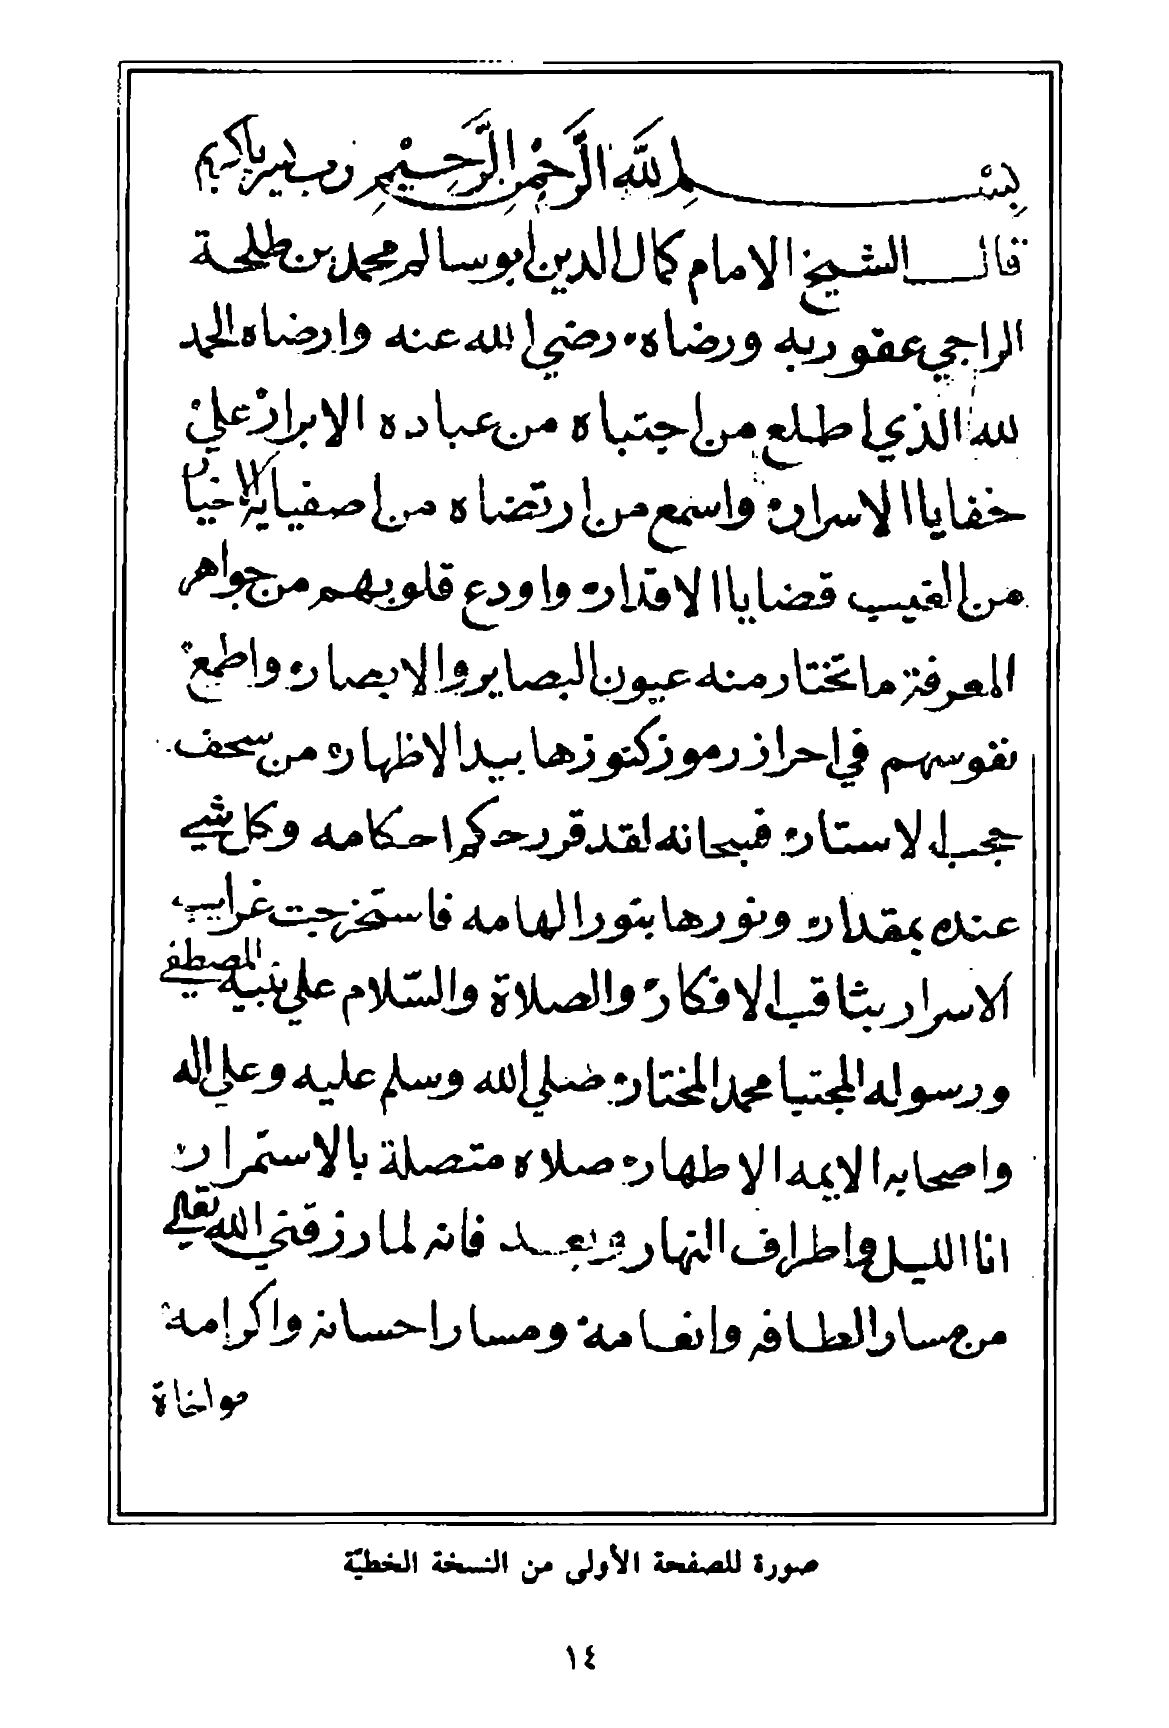 بسم الله الرحمن الرحيم رب يسر ياكريم
قال الشيخ الامام كمال الدين ابو سالم محمد بن طلحة
الراجي عفو ربه ورضاه رضي الله عنه وارضاه الحمد
لله الذي اطلع من اجتباه من عباده الابرار علي
خفايا الاسرار واسمع من ارتضاه من اصفيايه الاخيار
من الغيب قضايا الاقدار واودع قلوبهم من جواهر
المعرفة ما تختار منه عيون البصاير والابصار واطمع
نفوسهم في احراز رموز كنوزها بيد الاظهار من سجف
حجب الاستار فسبحانه لقد قرر حكم احكامه وكل شيي
عنده بمقدار ونورها بنور الهامه فاستخرجت غرايب
الاسرار بثاقب الافكار والصلاة والسّلام علي نبيه المصطفي
ورسوله المجتبا محمد المختار صلي الله وسلم عليه وعلي اله
واصحابه الايمه الاطهار صلاه متصلة بالاستمرار
انا الليل واطراف النهار وبعد فانه لما رزقني الله تعالي
من مسار الطافه وانعامه ومسار احسانه واكرامه
مواخاة
صورة للصفحة الأولى من النسخة الخطيّة
١٤